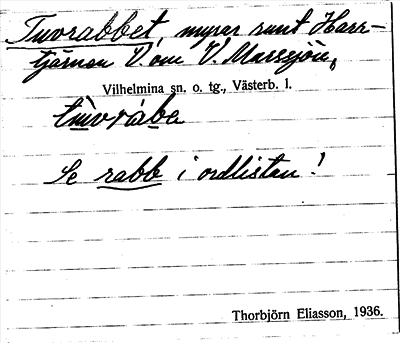 Tuvrabbet, myrar runt Harr-
tjärnen V. om V. Marssjön,
Vilhelmina sn. o. tg., Västerb. l.
tùvràbe
Se rabb i ordlistan!
Thorbjörn Eliasson, 1936.